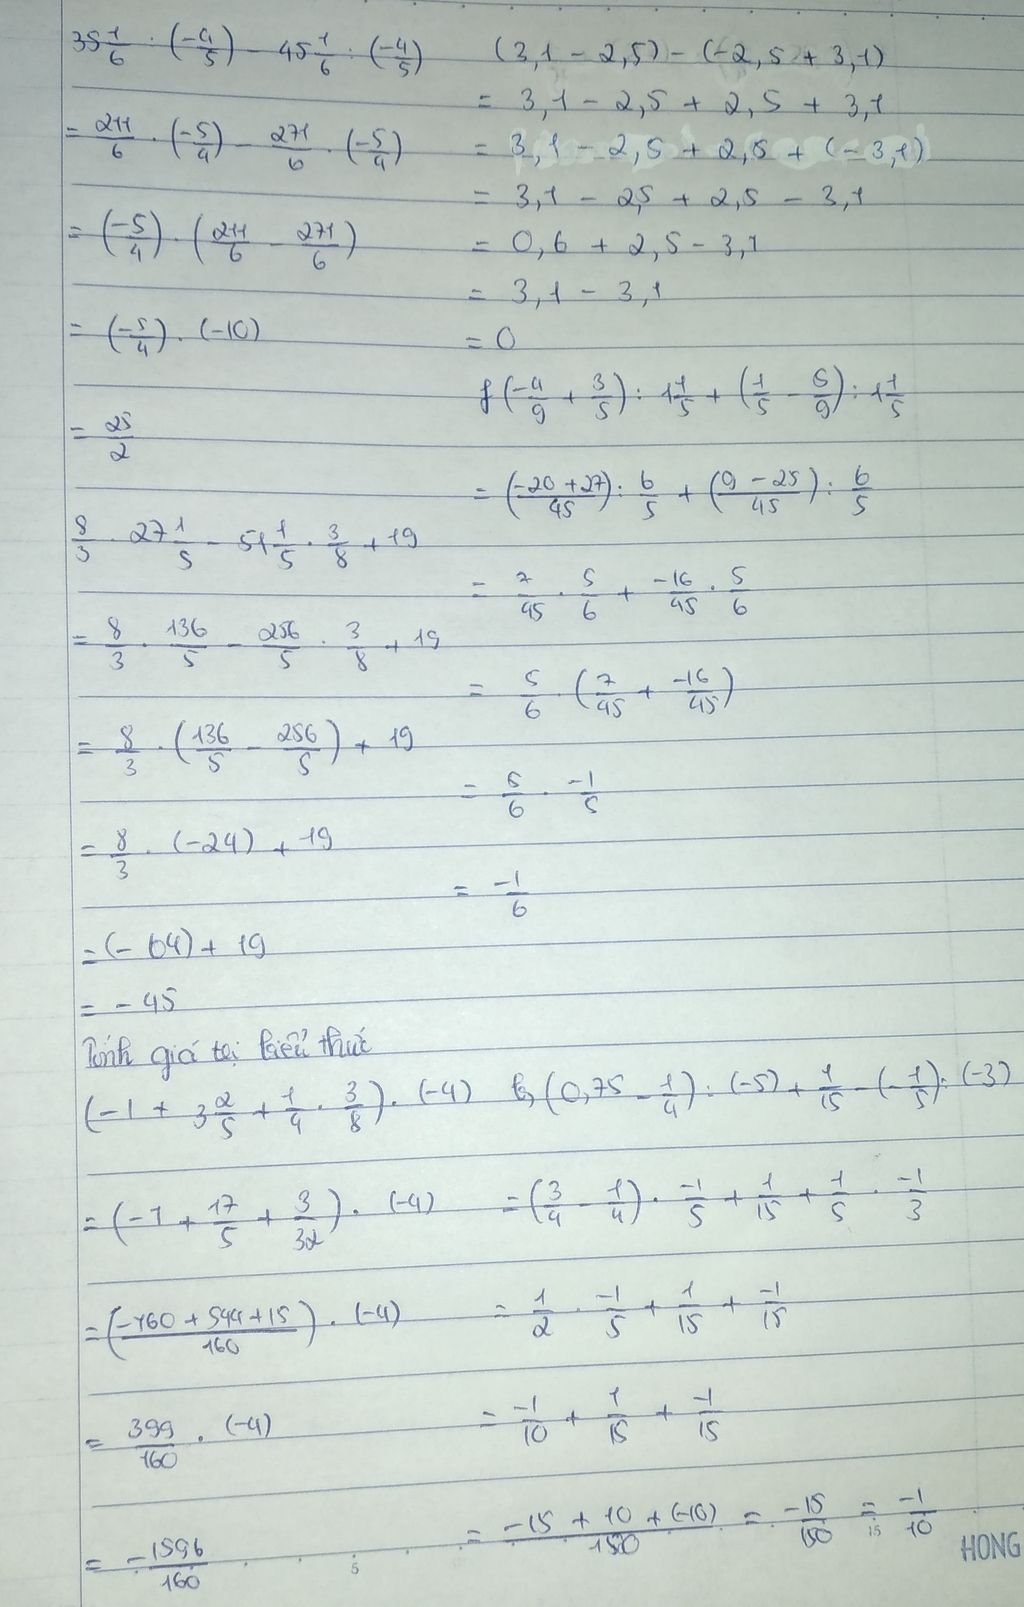 35 1/6 : (-4/5) - 45 1/6 : (-4/5)
= 211/6 . (-5/4) - 271/6 . (-5/4)
= (-5/4) . (211/6 - 271/6)
= (-5/4) . (-10)
= 25/2
8/3 . 27 1/5 - 51 1/5 . 3/8 + 19
= 8/3 . 136/5 - 256/5 . 3/8 + 19
= 8/3 . (136/5 - 256/5) + 19
= 8/3 . (-24) + 19
= (-64) + 19
= -45
(3,1 - 2,5) - (-2,5 + 3,1)
= 3,1 - 2,5 + 2,5 + 3,1
= 3,1 - 2,5 + 2,5 + (-3,1)
= 3,1 - 2,5 + 2,5 - 3,1
= 0,6 + 2,5 - 3,1
= 3,1 - 3,1
= 0
f (-4/9 + 3/5) : 1 1/5 + (1/5 - 5/9) : 1 1/5
= (-20 + 27/45) : 6/5 + (9 - 25/45) : 6/5
= 7/45 . 5/6 + -16/45 . 5/6
= 5/6 . (7/45 + -16/45)
= 5/6 . -1/5
= -1/6
Tính giá tại biểu thức
(-1 + 3 2/5 + 1/4 . 3/8) . (-4)
= (-1 + 17/5 + 3/32) . (-4)
= (-160 + 544 + 15/160) . (-4)
= 399/160 . (-4)
= -1596/160
b, (0,75 - 1/4) : (-5) + 1/15 - (-1/5) : (-3)
= (3/4 - 1/4) . -1/5 + 1/15 + 1/5 . -1/3
= 1/2 . -1/5 + 1/15 + -1/15
= -1/10 + 1/15 + -1/15
= -15 + 10 + (-10)/150 = -15/150 = -1/10
5
15
HONG